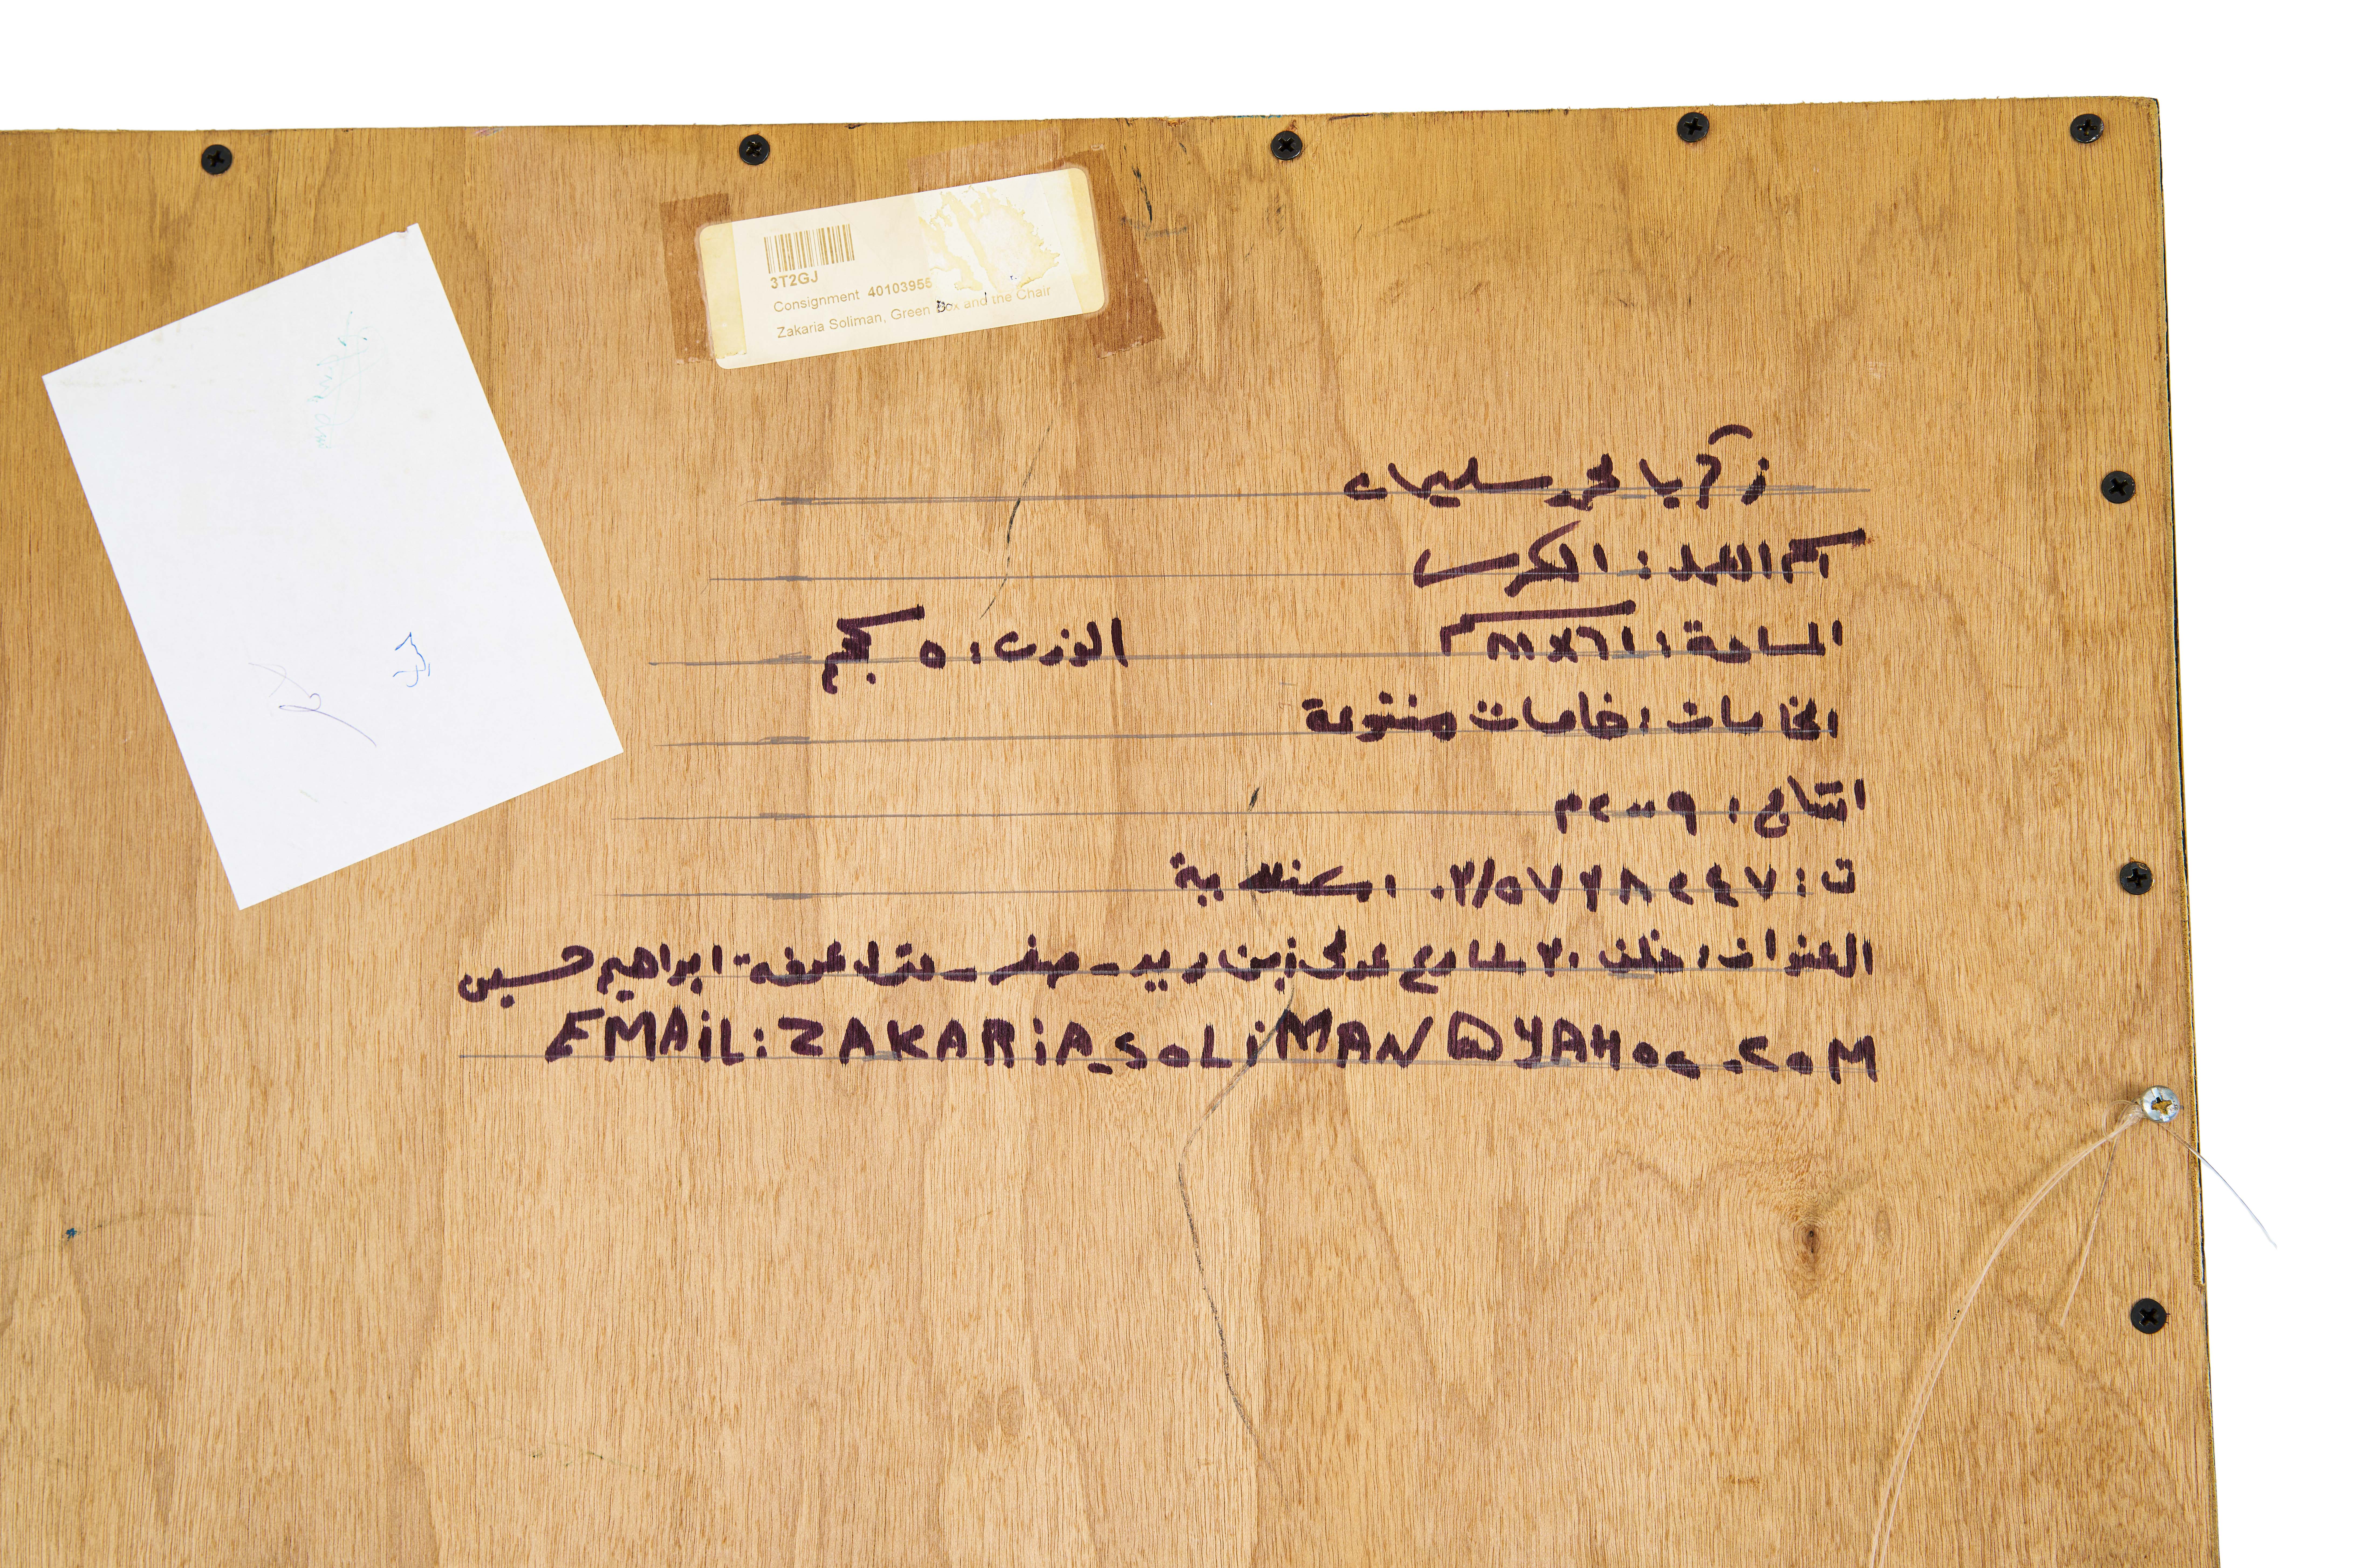 3T2GJ
Consignment 40103955
Zakaria Soliman, Green Box and the Chair
زكريا محمد سليمان
اسم العمل : الكرسى
المساحة : الوزن : ٥ كجم
الخامات : خامات متنوعة
انتاج : ٢٠٠٩م
ت : ٠٣/٥٧٣٨٢٤٧ اسكندرية
العنوان : خلف ٢٠ شارع ابن دريد - صفر - منزل ابراهيم حسين
EMAiL: ZAKARiA_SOLiMAN@YAHOO.COM